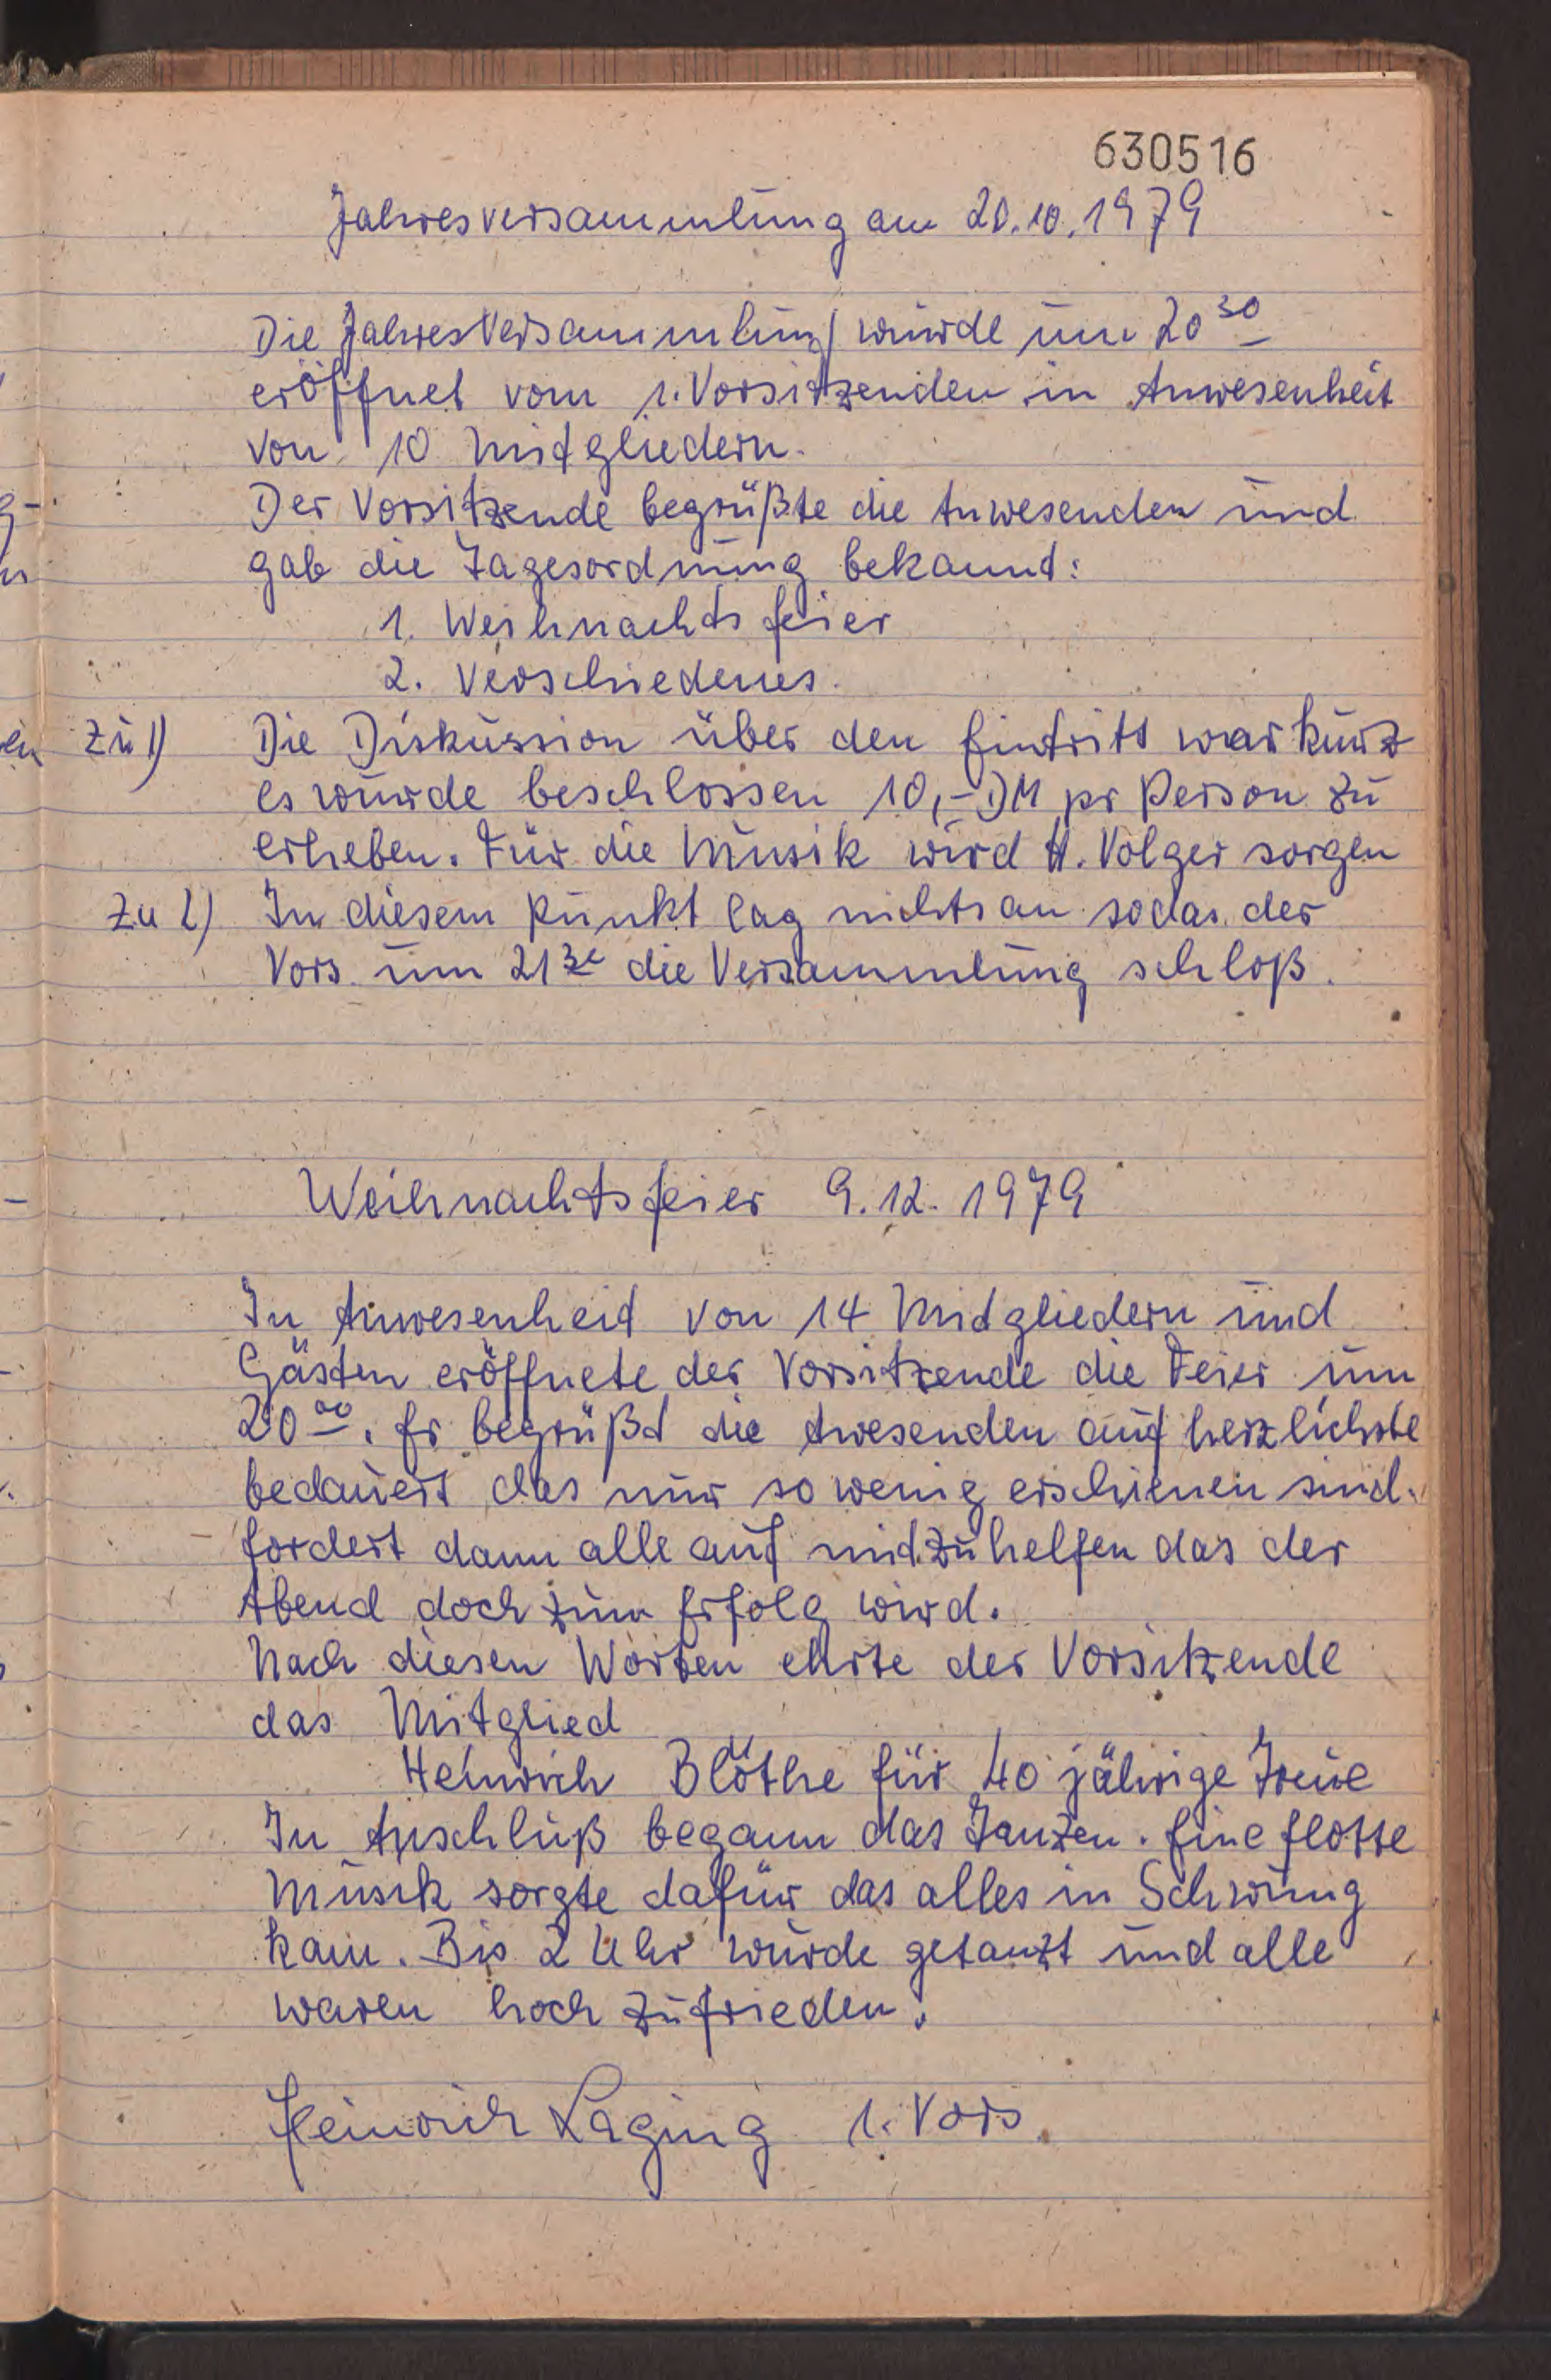 630516
Jahresversammlung am 20.10.1979
Die Jahresversammlung wurde um 20³⁰
eröffnet vom 1. Vorsitzenden in Anwesenheit
von 10 Mitgliedern.
Der Vorsitzende begrüßte die Anwesenden und
gab die Tagesordnung bekannt:
1. Weihnachtsfeier
2. Verschiedenes.
Zu 1) Die Diskussion über den Eintritt war kurz
es wurde beschlossen 10,- DM pr Person zu
erheben. Für die Musik wird H. Volger sorgen
Zu 2) In diesem Punkt lag nichts an sodas der
Vors. um 21³⁰ die Versammlung schloß.
Weihnachtsfeier 9.12.1979
In Anwesenheit von 14 Mitgliedern und
Gästen eröffnete der Vorsitzende die Feier um
20⁰⁰. Er begrüßt die Awesenden auf herzlichste
bedauert das nur so wenig erschienen sind.
fordert dann alle auf mitzuhelfen das der
Abend doch zum Erfolg wird.
Nach diesen Worten ehrte der Vorsitzende
das Mitglied
Heinrich Blöthe für 40 jährige Treue
In Anschluß begann das Tanzen. Eine flotte
Musik sorgte dafür das alles in Schwung
kam. Bis 2 Uhr wurde getanzt und alle
waren hoch zufrieden.
Heinrich Laging 1. Vors.